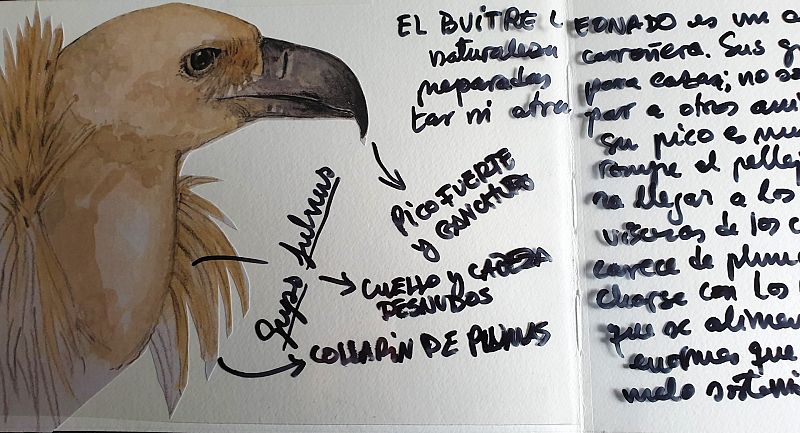 EL BUITRE LEONADO es un a
naturaleza carroñera. Sus ga
preparadas para cazar; no so
tar ni atrapar a otros ani
Su pico es mu
rompe el pellej
ra llegar a los
vísceras de los c
carece de pluma
charse con los
que se alimen
enormes que
suelo sosteni
PICO FUERTE
y GANCHUDO
CUELLO y CABEZA
DESNUDOS
COLLARÍN DE PLUMAS
Gyps fulvus